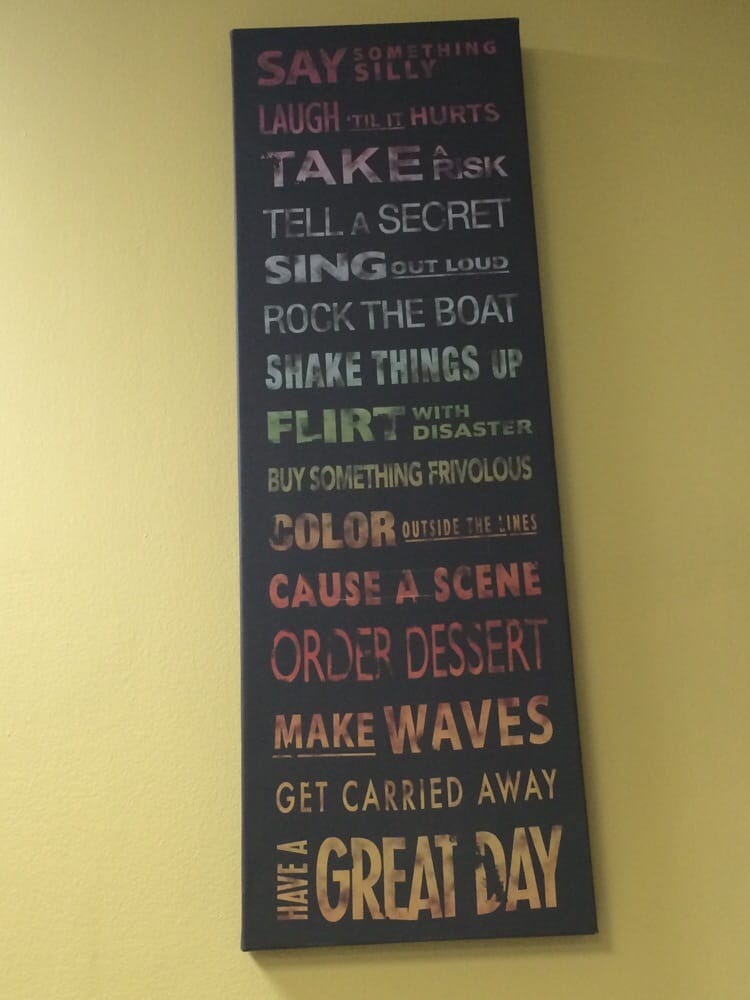 SAY SOMETHING SILLY
LAUGH 'TIL IT HURTS
TAKE A RISK
TELL A SECRET
SING OUT LOUD
ROCK THE BOAT
SHAKE THINGS UP
FLIRT WITH DISASTER
BUY SOMETHING FRIVOLOUS
COLOR OUTSIDE THE LINES
CAUSE A SCENE
ORDER DESSERT
MAKE WAVES
GET CARRIED AWAY
HAVE A GREAT DAY